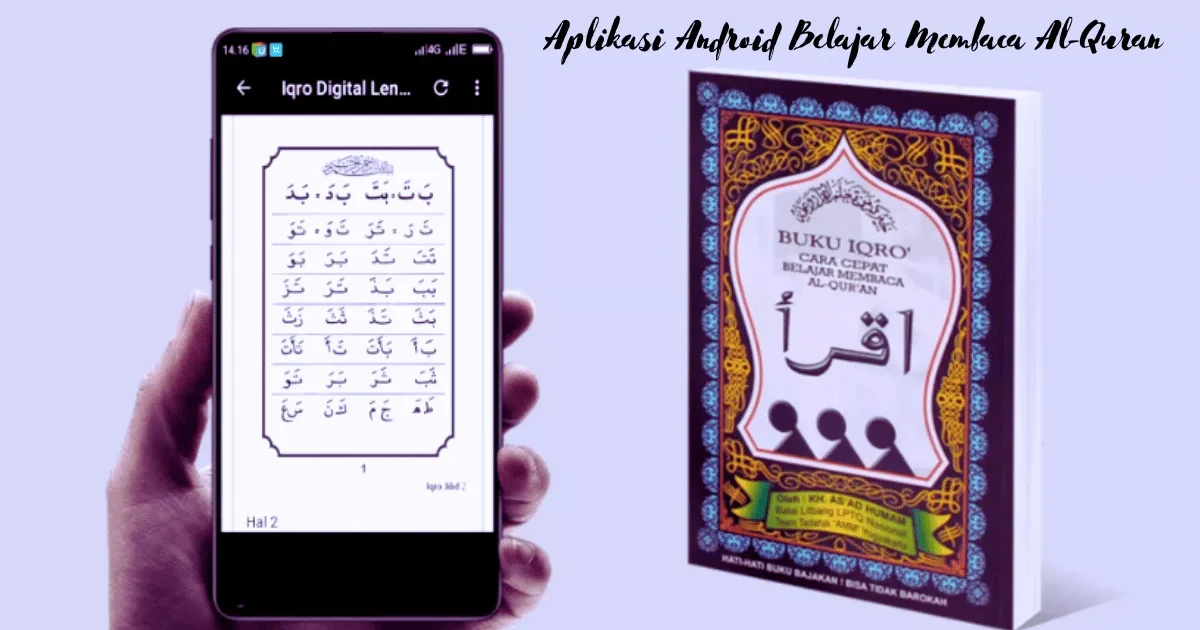 Aplikasi Android Belajar Membaca Al-Quran
14.16 4G E
Iqro Digital Len...
بَ تَ : بَتَ بَ دَ : بَدَ
تَ رَ : تَرَ تَ وَ : تَوَ
تَتَ تَدَ بَرَ بَوَ
بَبَ بَذَ تَرَ تَزَ
بَثَ تَذَ زَثَ
بَ أَ بَأَتَ تَ أَ تَأَتَ
بَرَ تَوَ
جَ مَ كَ نَ سَ عَ
1
Iqro Jilid 2
Hal 2
BUKU IQRO'
CARA CEPAT
BELAJAR MEMBACA
AL-QUR'AN
اقرأ
Oleh : KH. AS'AD HUMAM
Balai Litbang LPTQ Nasional
Team Tadarus "AMM" Yogyakarta
HATI-HATI BUKU BAJAKAN ! BISA TIDAK BAROKAH